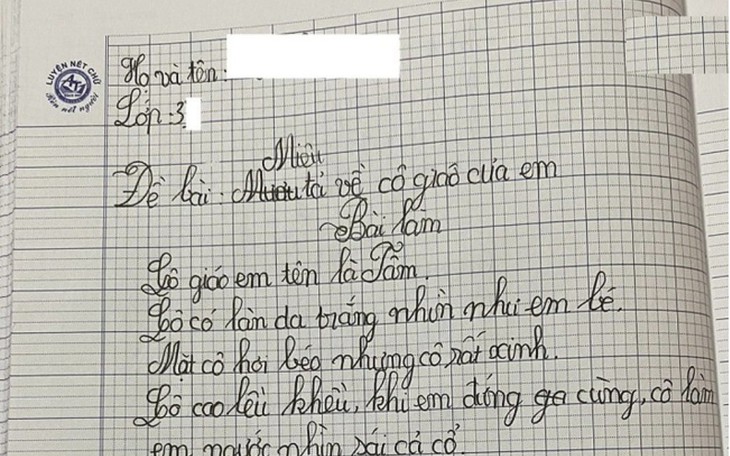 LUYỆN NÉT CHỮ
Rèn nết người
Họ và tên:
Lớp: 3
Miêu
Đề bài: Mưu tả về cô giáo của em
Bài làm
Cô giáo em tên là Tâm.
Cô có làn da trắng nhìn như em bé.
Mặt cô hơi béo nhưng cô rất xinh.
Cô cao lêu khêu, khi em đứng ga cùng, cô làm
em ngước nhìn sái cả cổ.